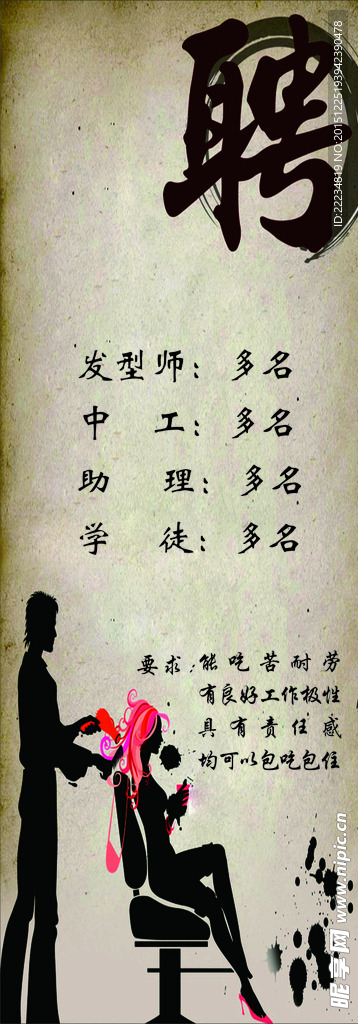 聘
发型师：多名
中工：多名
助理：多名
学徒：多名
要求：能吃苦耐劳
有良好工作极性
具有责任感
均可以包吃包住
ID:22234819 NO:20151225193942390478
昵享网 www.nipic.cn